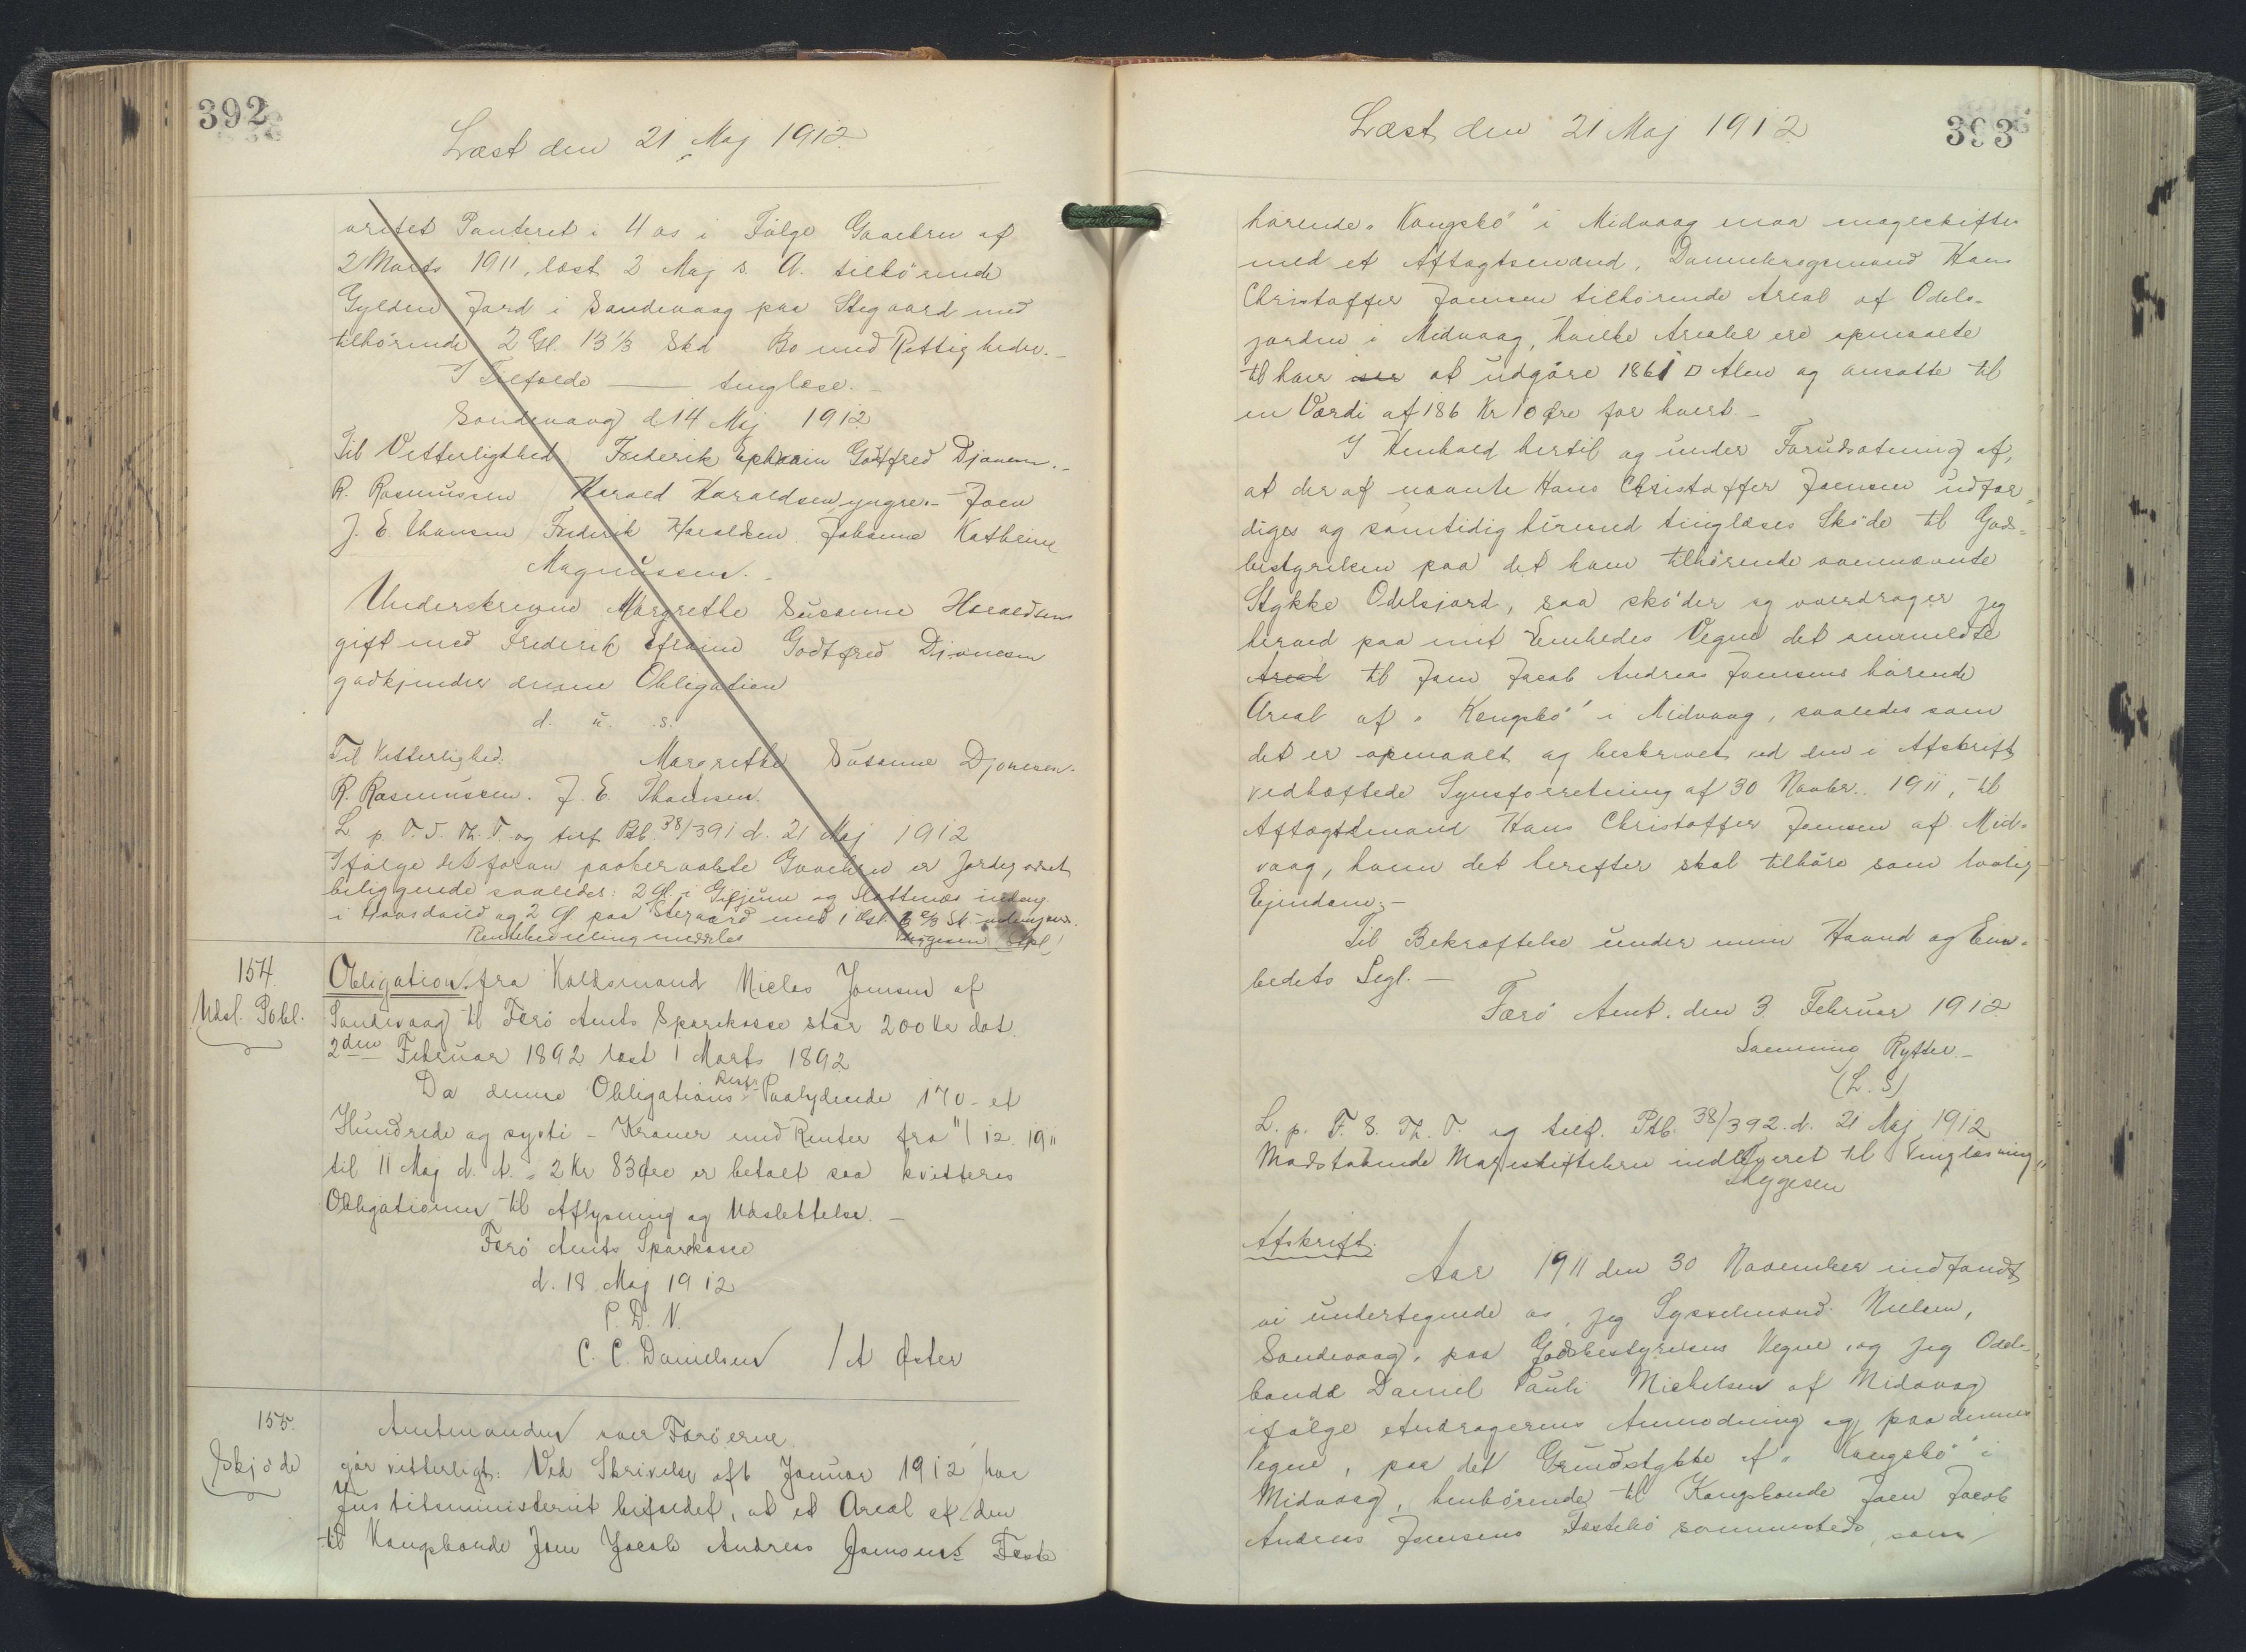 392
Læst den 21 Maj 1912.
oritet Panteret i 4 os i Følge Gavebrev af
2 Marts 1911, læst 2 Maj s. A. tilhørende
Gylden Jord i Sandevaag paa Stegaard med
tilhørende 2 Gl. 13 1/3 Skd Bo med Rettigheder.-
I Tilfælde — tinglæse.-
Sandevaag d 14 Maj 1912
Til Vitterlighed Frederik Ephraim Godtfred Djonesen.-
R. Rasmussen Harald Haraldsen yngre.- Joen
J. E. Thomsen Frederik Haraldsen. Johanne Kathrine
Magnussen.-
Underskrevne Margrethe Susanne Haraldsen
gift med Frederik Efraim Godtfred Djonesen
godkjender denne Obligation
d. u. s.
Til Vitterlighed: Margrethe Susanne Djonesen.
R. Rasmussen. J. E. Thomsen.
L. p. F. S. Th. V. og tilf. Ptb. 38/391 d. 21 Maj 1912
Ifølge det foran paaberaabte Gavebrev er Jordegodset
beliggende saaledes: 2 Gl. i Giljum og Slattenæs indeng
i Haosdauld og 2 Gl. paa Stegaard med 1
Rentebedeling meddeles Thygesen Spl.
154.
Udsl. Pobl.
Obligation fra Kaldsmand Niclas Joensen af
Sandevaag til Færø Amts Sparekasse stor 200 Kr dat.
2den Februar 1892 læst 1 Marts 1892
Da denne Obligations Rest Paalydende 170 - et
Hundrede og systi - Kroner med Renter fra 11/12. 1911
til 11 Maj d. A. = 2 Kr 83 Øre er betalt saa kvitteres
Obligationen til Aflysning og Udslettelse.-
Færø Amts Sparekasse
d. 18 Maj 1912
P. D. V.
C. C. Danielsen / A Øster
155.
Skjøde
Amtmanden over Færøerne
gør vitterligt: Ved Skrivelse af 6 Januar 1912 har
Justitsministeriet bifaldet, at et Areal af den
til Kongsbonde Joen Jacob Andreas Joensens Feste
393
Læst den 21 Maj 1912
hørende „Kongsbø" i Midvaag maa mageskiftes
med et Aftagtsmand, Dannebrogsmand Hans
Christoffer Joensen tilhørende Areal af Odels-
jorden i Midvaag, hvilke Arealer ere opmaalte
til hver at udgøre 1861 □ Alen og ansatte til
en Værdi af 186 Kr 10 Øre for hvert.-
I Henhold hertil og under Forudsætning af,
at der af nævnte Hans Christoffer Joensen udfær-
diges og samtidig hermed tinglæses Skøde til Gods-
bestyrelsen paa det ham tilhørende ovennævnte
Stykke Odelsjord, saa skøder og overdrager jeg
herved paa mit Embedes Vegne det anmeldte
Areal til Joen Jacob Andreas Joensens hørende
Areal af „Kongsbø" i Midvaag, saaledes som
det er opmaalt og beskrevet ved den i Afskrift
vedhæftede Synsforretning af 30 Novbr. 1911, til
Aftægtsmand Hans Christoffer Joensen af Mid-
vaag, hvem det herefter skal tilhøre som lovlig
Ejendom;-
Til Bekræftelse under min Haand og Em-
bedets Segl.-
Færø Amt. den 3 Februar 1912
Rytter.-
(L. S)
L. p. F. S. Th. V. og tilf. Ptb. 38/392. d. 21 Maj 1912
Modstaaende Mageskiftebrev indleveret til Tinglæsning
Thygesen
Afskrift.
Aar 1911 den 30 November indfandt
vi undertegnede os, jeg Sysselmand Nielsen,
Sandevaag, paa Godsbestyrelsens Vegne, og jeg Odels-
bonde Daniel Pauli Michelsen af Midvaag
ifølge Andragerens Anmodning og paa dennes
Vegne, paa det Grundstykke af „Kongsbø" i
Midvaag, henhørende til Kongsbonde Joen Jacob
Andreas Joensens Festebø sammesteds, som